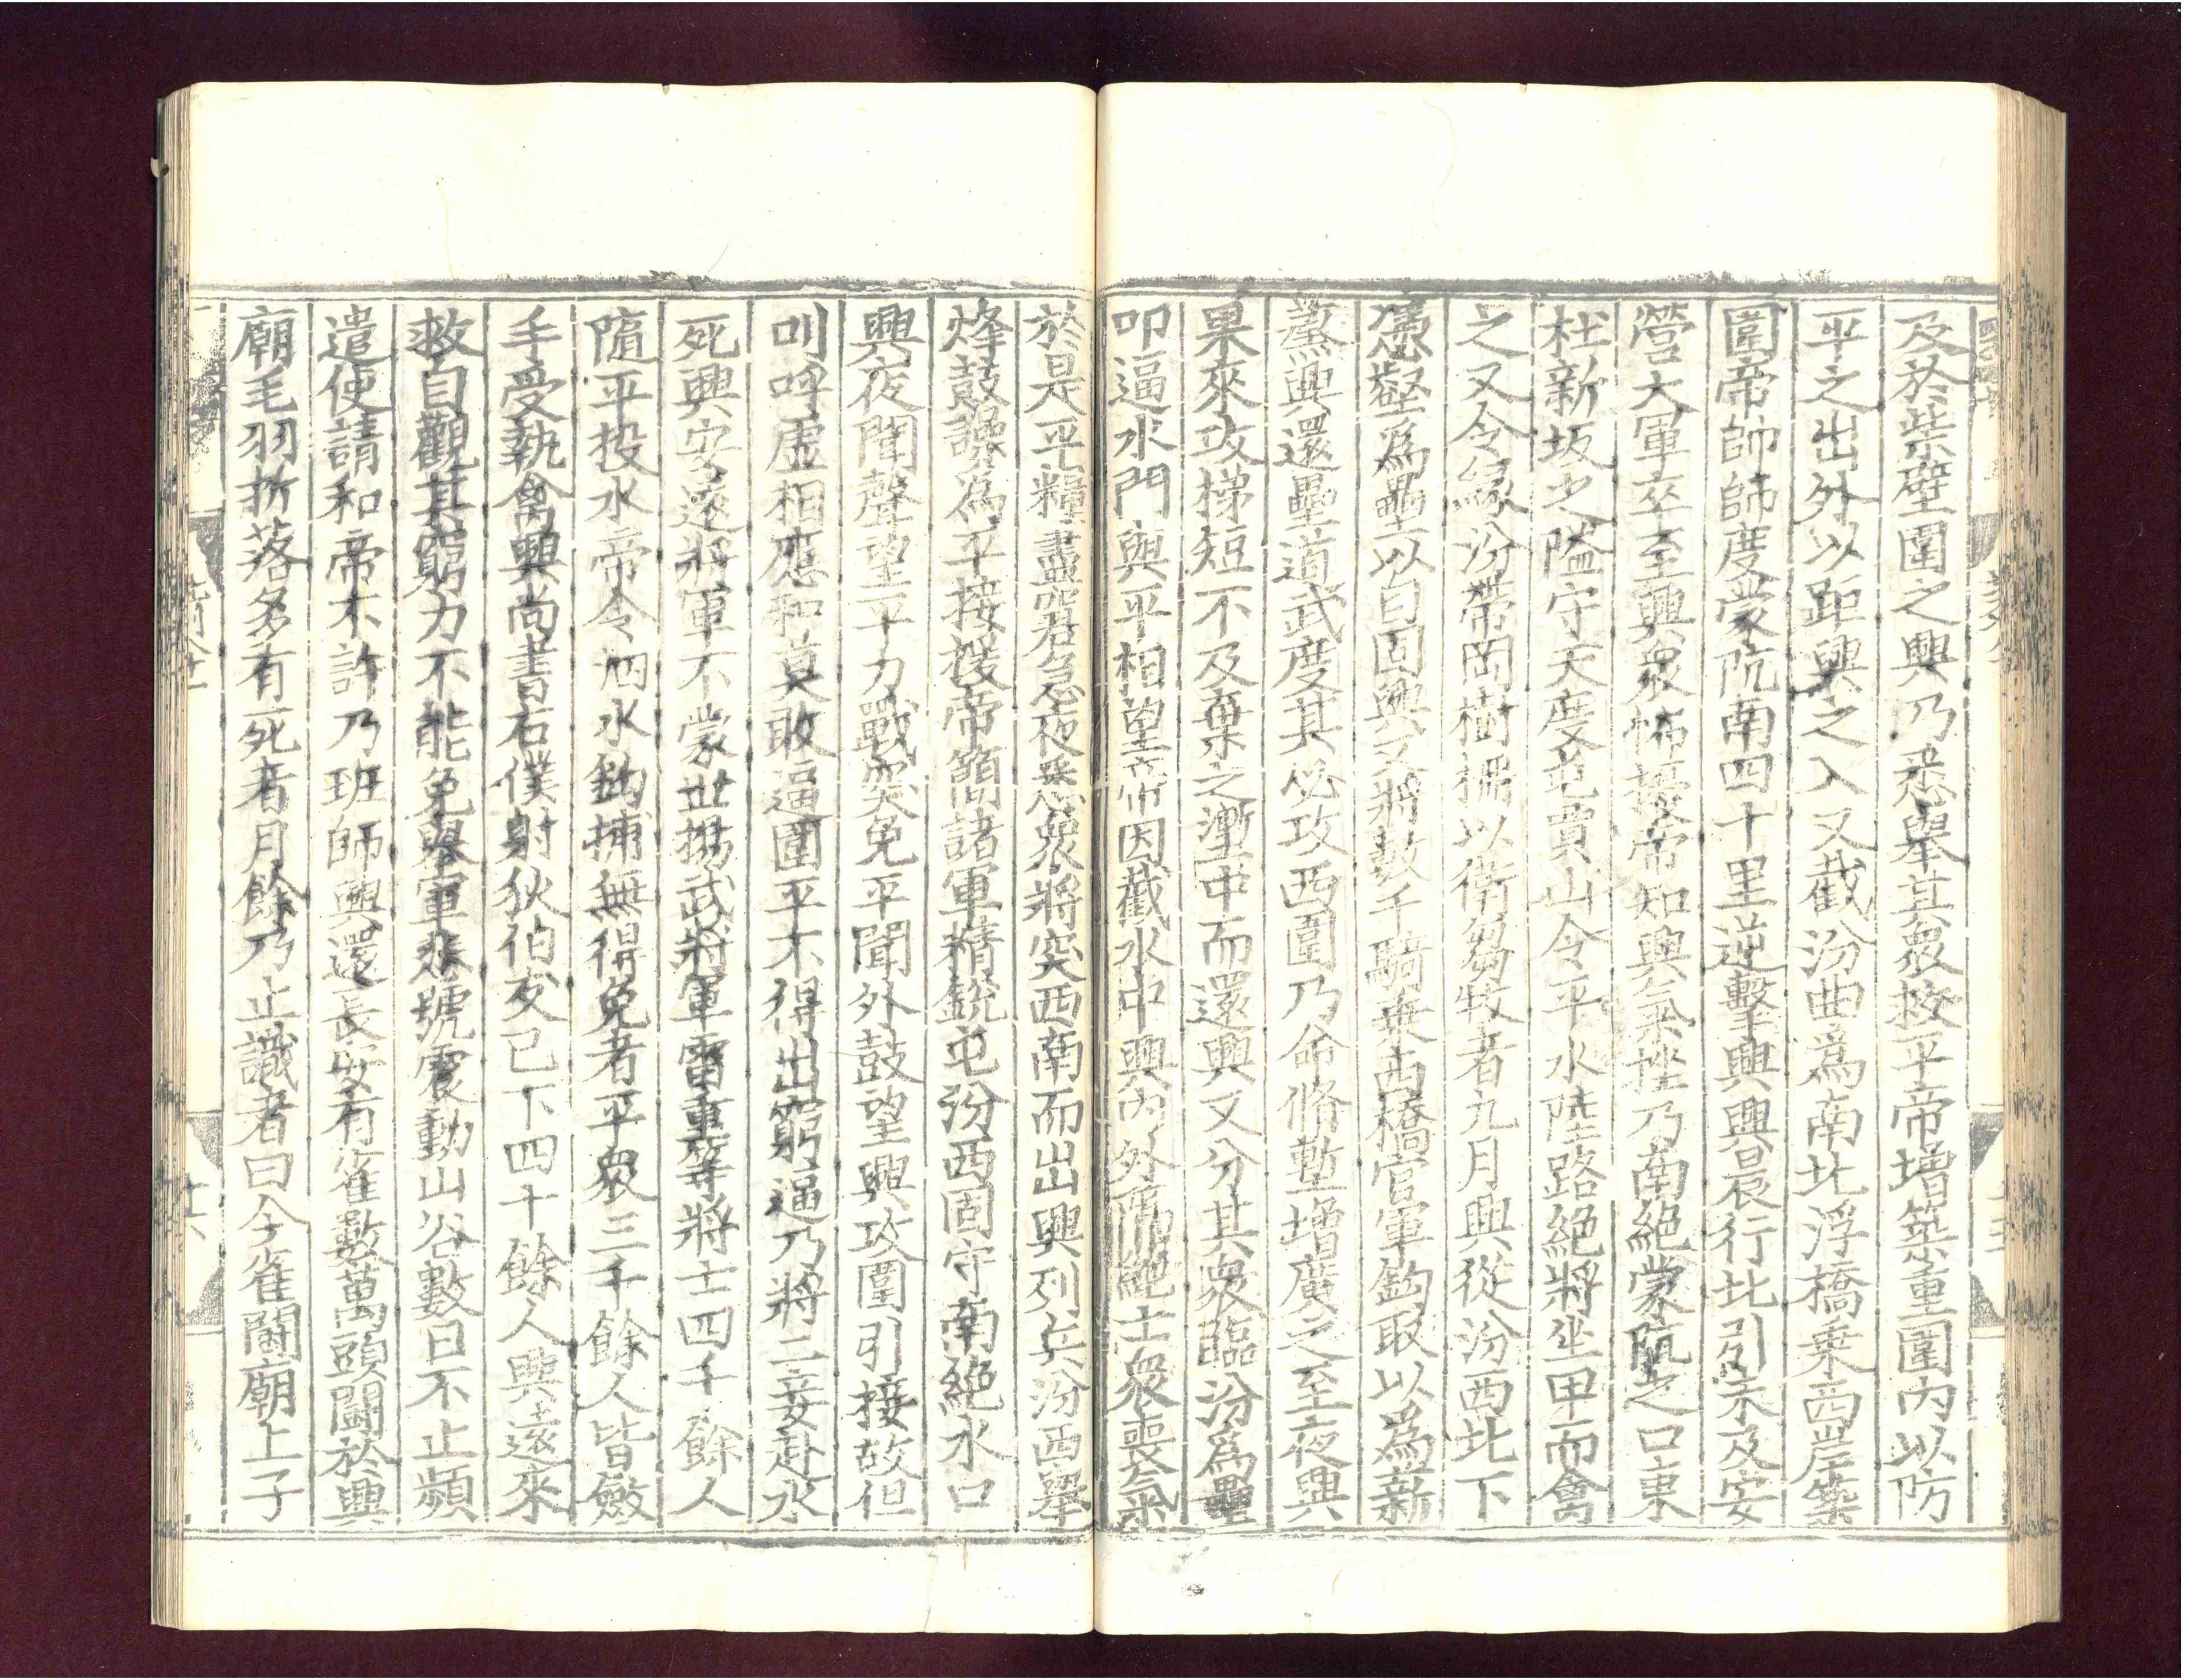 及於柴壁圍之興乃悉舉其衆救平帝增築重圍內以防
平之出外以距興之入又截汾曲爲南北浮橋乗西岸築
圍帝帥師度蒙阬南四十里逆擊興興晨行北引未及安
營大軍卒至興衆怖擾帝知興氣挫乃南絶蒙阬之口東
杜新坂之隘守天度屯賈山令平水陸路絶將坐甲而禽
之又令縁汾帶岡樹柵以衛芻牧者九月興從汾西北下
憑壑爲壘以自固興又將數千騎乗西橋官軍鈎取以爲薪
蒸興還壘道武度其必攻西圍乃命脩塹增廣之至夜興
果來攻梯短不及棄之塹中而還興又分其衆臨汾爲壘
叩逼水門與平相望帝因截水中興內外隔絶士衆喪氣
於是平糧盡窘急夜悉衆將突西南而出興列兵汾西舉
烽鼓譟爲平接援帝簡諸軍精銳屯汾西固守南絶水口
興夜聞聲望平力戰突免平聞外鼓望興攻圍引接故但
叫呼虛相應和莫敢逼圍平不得出窮逼乃將二妾赴水
死興安遠將軍不蒙世揚武將軍雷重等將士四千餘人
隨平投水帝令泅水鈎捕無得免者平衆三千餘人皆斂
手受執禽興尚書右僕射狄伯支已下四十餘人興遠來
救自觀其窮力不能免舉軍悲號震動山谷數日不止頻
遣使請和帝不許乃班師興還長安有雀數萬頭鬪於興
廟毛羽折落多有死者月餘乃止識者曰今雀鬪廟上子